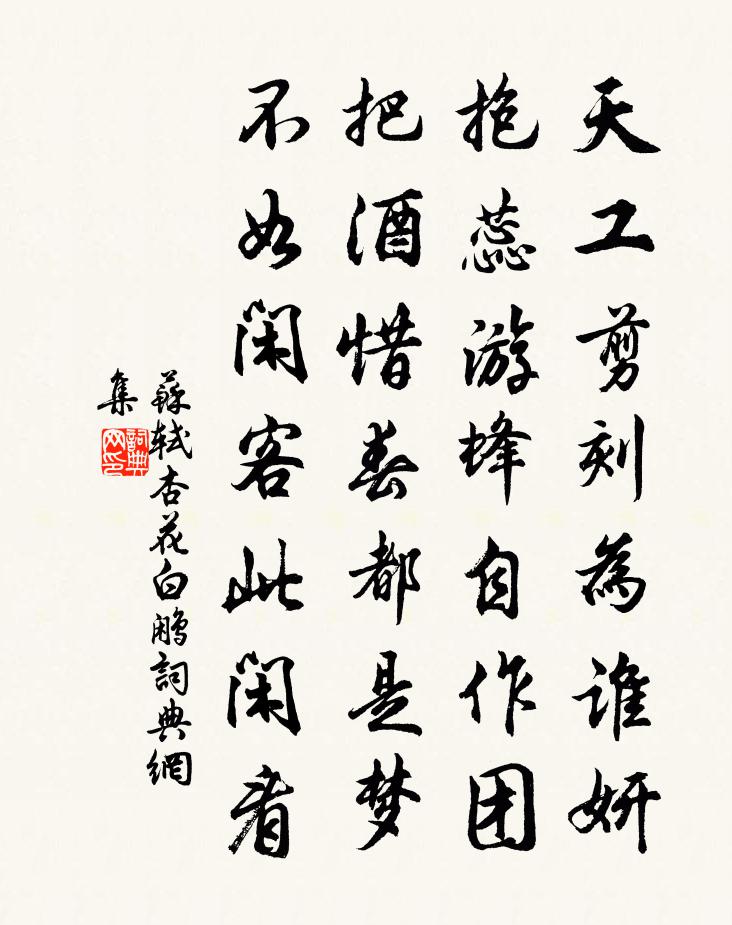 天工剪刻為谁妍
抱蕊游蜂自作团
把酒惜春都是梦
不如闲客此闲看
蘇軾杏花白鹇詞典網
集
詞典网印